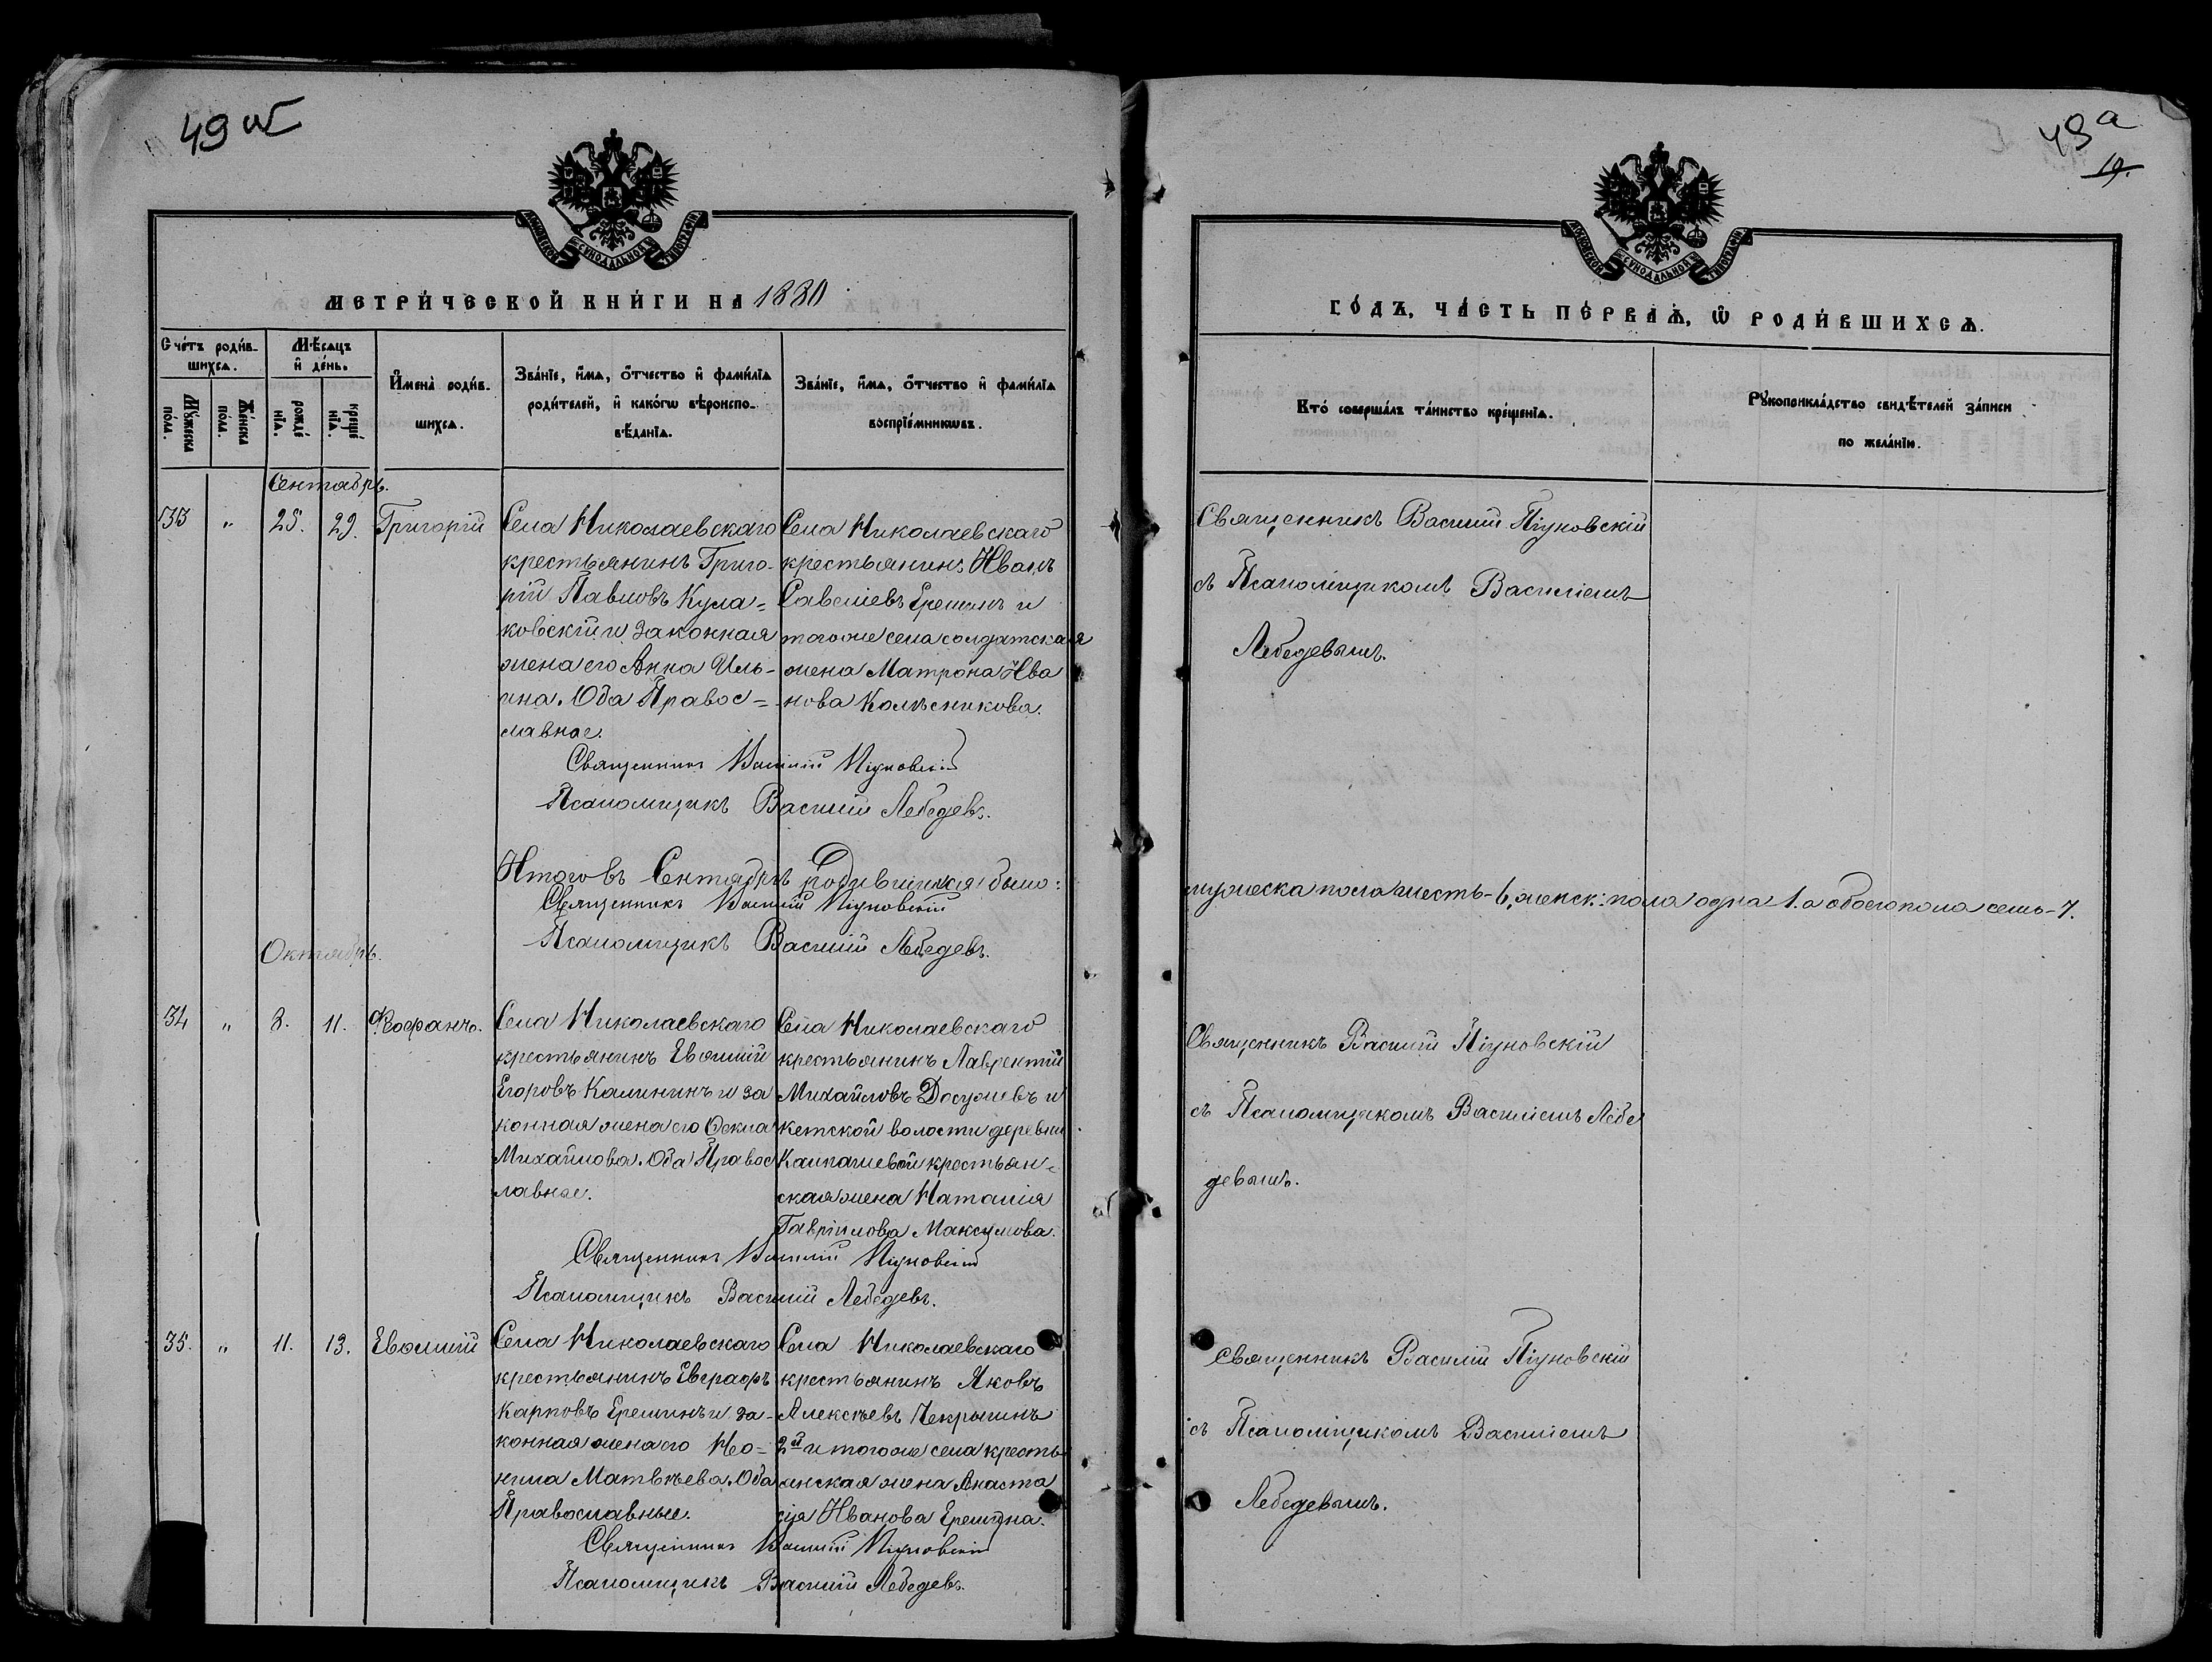 49 об
МОСКОВСКОЙ СѴНОДАЛЬНОЙ ТИПОГРАФІИ
МЕТРИ́ЧЕСКОЙ КНИ́ГИ НА 1880
Сче́тъ роди́в-
шихсѧ.
Мѣ́сѧцъ
и҆ де́нь.
Мꙋ́жеска
по́ла.
Же́нска
по́ла.
рожде́
нїѧ.
креще́
нїѧ.
И҆мена̀ роди́в.
шихсѧ.
Зва́нїе, и҆́мѧ, ѻ҆́тчество и҆ фами́лїѧ
роди́телей, и҆ како́гѡ вѣроиспо-
вѣ́данїѧ.
Зва́нїе, и҆́мѧ, ѻ҆́тчество и҆ фами́лїѧ
воспрїе́мникѡвъ.
Сентябрь.
33 „ 25. 29. Григорій
Села Николаевскаго
крестьянинъ Григо-
рій Павловъ Кула=
ковскій и законная
жена его Анна Иль-
ина. Оба Правос=
лавные.
Села Николаевскаго
крестьянинъ Иванъ
Савеліевъ Еремин и
тогоже села солдатская
жена Матрона Ива
нова Колѣсникова.
Священникъ Василій Піуновскій
Псаломщикъ Василій Лебедевъ.
Итого въ Сентябрѣ родившихся было:
Священникъ Василій Піуновскій
Псаломщикъ Василій Лебедевъ.
Октябрь.
34 „ 8. 11. Ѳеофанъ.
Села Николаевскаго
крестьянинъ Евѳимій
Егоровъ Калининъ и за
конная жена его Ѳекла
Михайлова. Оба Правос
лавные.
Села Николаевскаго
крестьянинъ Лаврентій
Михайловъ Досужевъ и
кетской волости деревни
крестьян-
ская жена Наталія
Гавріилова Максимова.
Священникъ Василій Піуновскій
Псаломщикъ Василій Лебедевъ.
35. „ 11. 13. Евѳимій
Села Николаевскаго
крестьянинъ Евграфъ
Карповъ Ереминъ и за-
конная жена его Нео=
нила Матвѣева. Оба
Православные.
Села Николаевскаго
крестьянинъ Яковъ
Алексѣевъ Чекрыгинъ
2й и тогоже села кресть
янская жена Анаста
сія Иванова Еремина.
Священникъ Василій Піуновскій
Псаломщикъ Василій Лебедевъ.
49 а
19.
МОСКОВСКОЙ СѴНОДАЛЬНОЙ ТИПОГРАФІИ
ГО́ДЪ, ЧА́СТЬ ПЕ́РВАѦ, Ѽ РОДИ́ВШИХСѦ.
Кто̀ соверша́лъ та́инство креще́нїѧ.
Рꙋкоприкла́дство свидѣ́телей за́писи
по жела́нїю.
Священникъ Василій Піуновскій
съ Псаломщикомъ Василіемъ
Лебедевымъ.
мужеска пола шесть-6, женск: пола одна 1. а обоего пола семь-7.
Священникъ Василій Піуновскій
съ Псаломщикомъ Василіемъ Лебе
девымъ.
Священникъ Василій Піуновскій
съ Псаломщикомъ Василіемъ
Лебедевымъ.